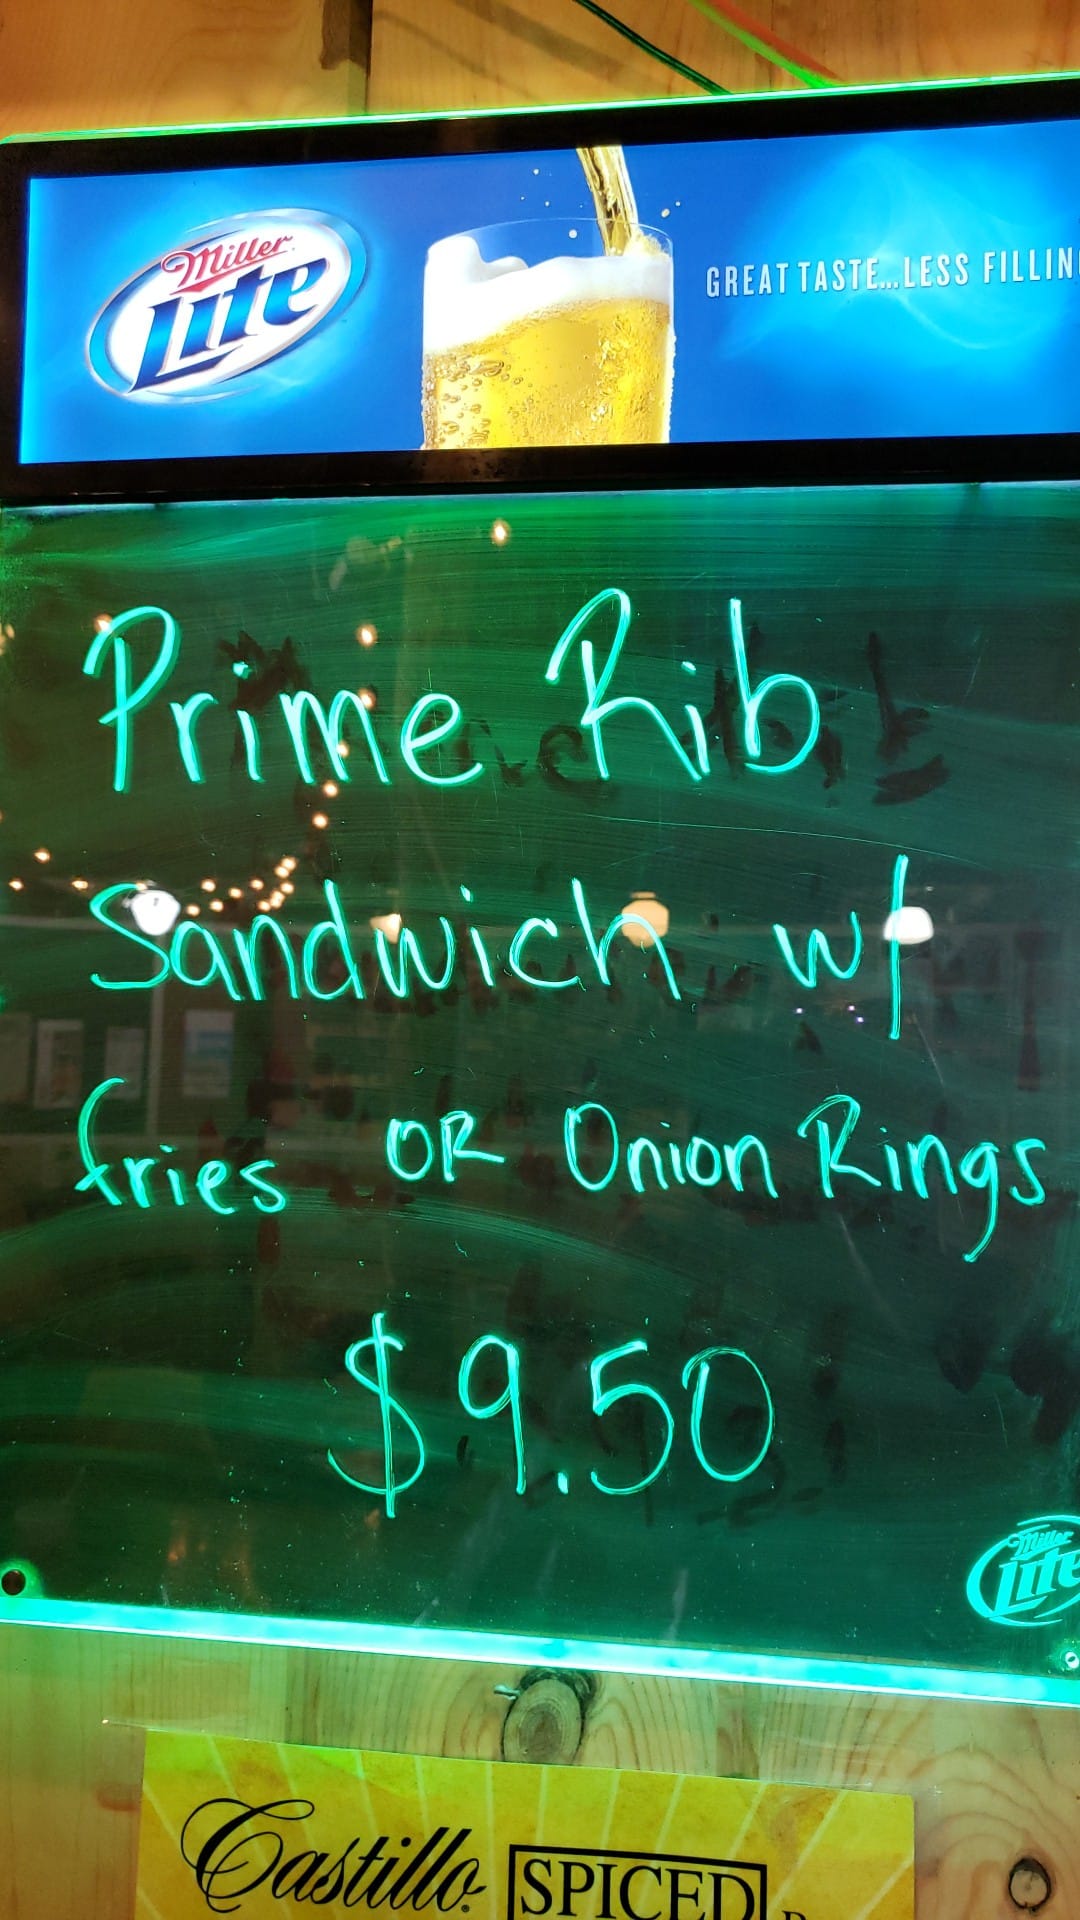 Miller
Lite
GREAT TASTE...LESS FILLIN
Prime Rib
Sandwich w/
fries OR Onion Rings
$9.50
Miller
Lite
Castillo SPICED